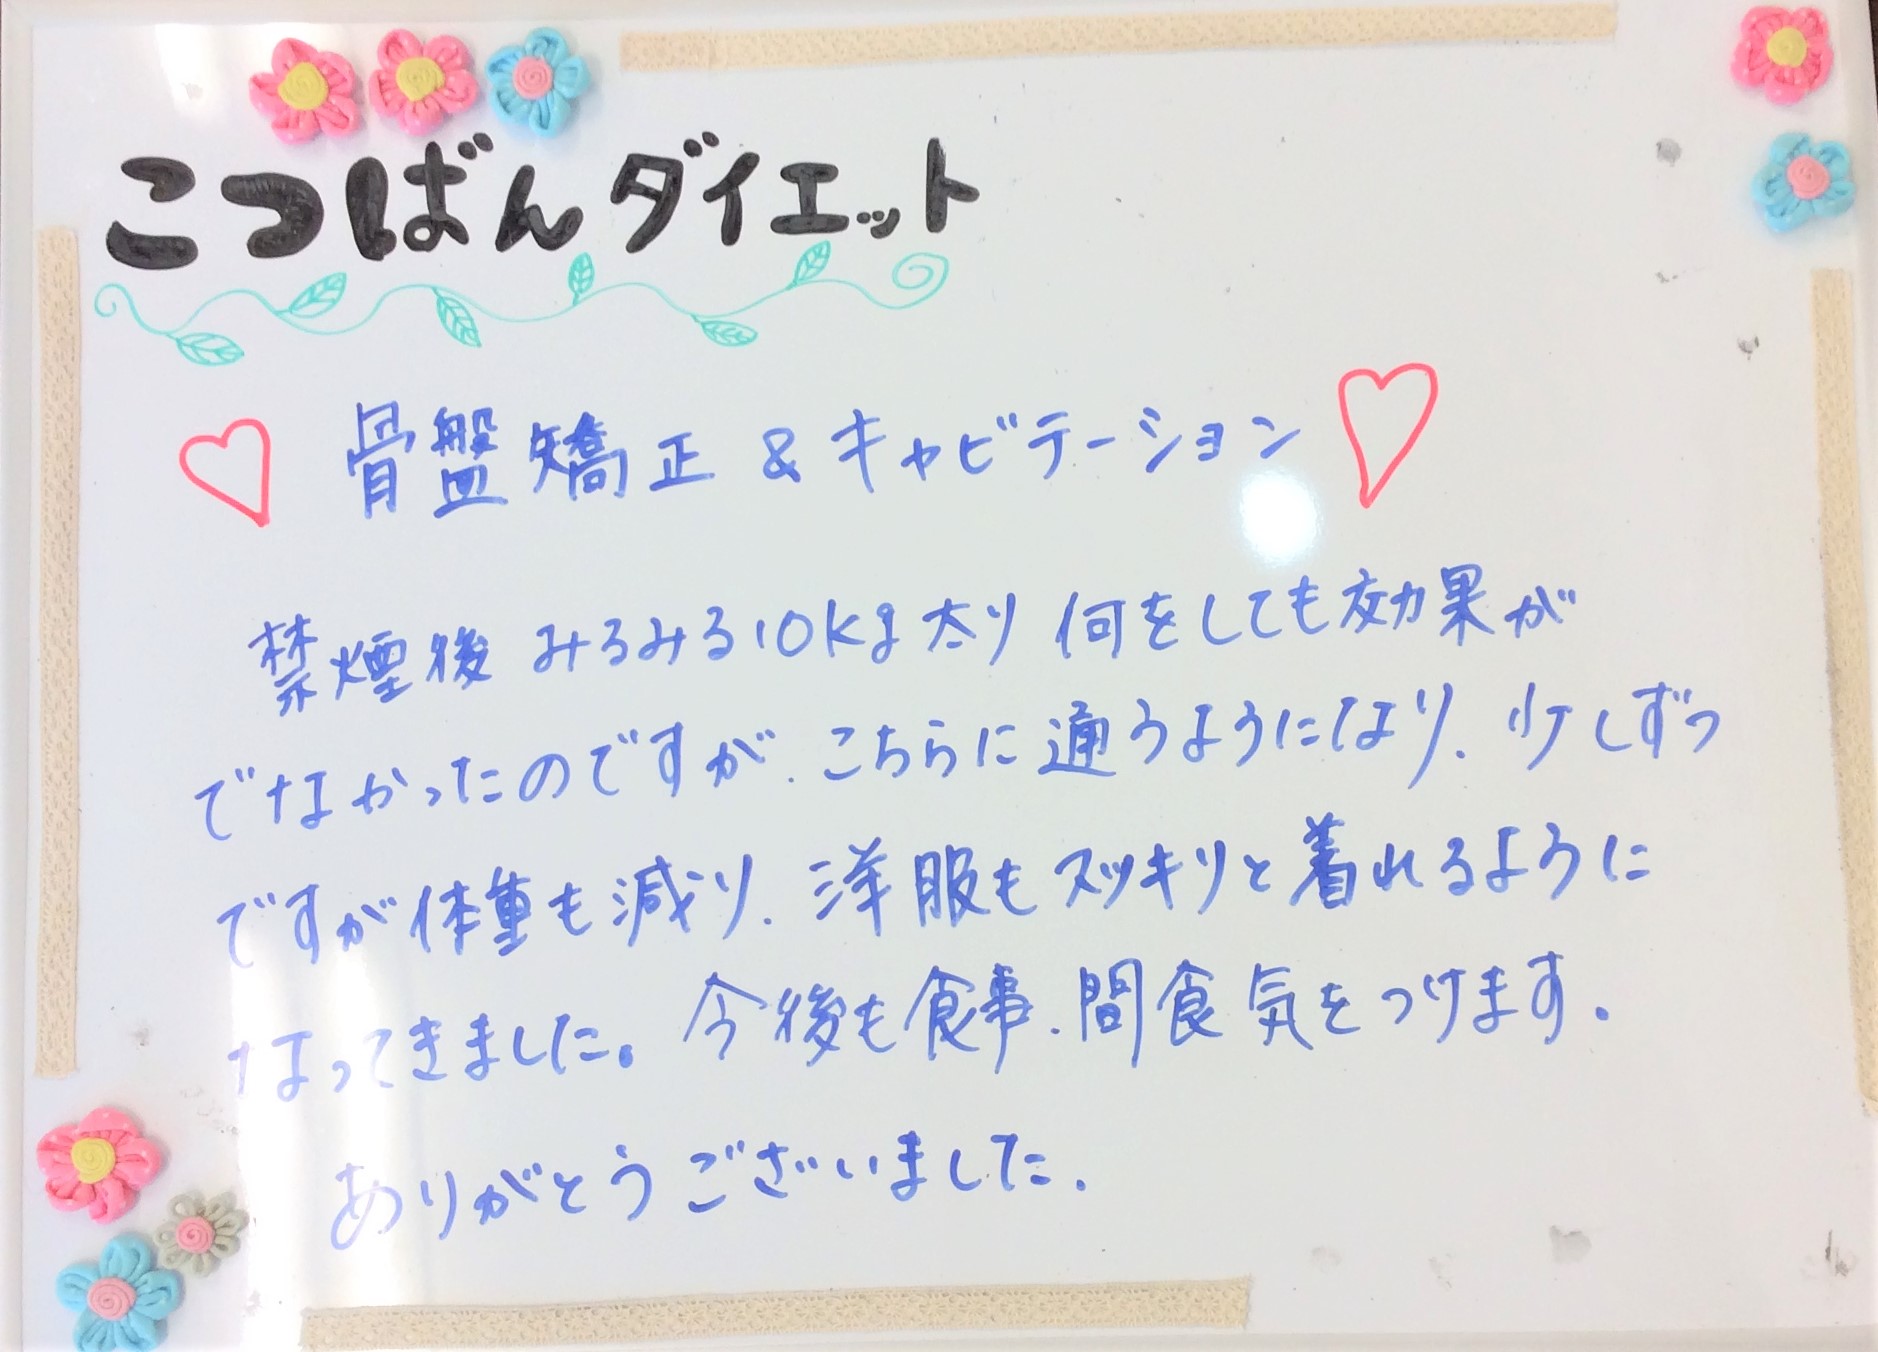 こつばんダイエット
骨盤矯正&キャビテーション
禁煙後 みるみる10kg太り 何をしても効果が
でなかったのですが、こちらに通うようになり、少しずつ
ですが体重も減り、洋服もスッキリと着れるように
なってきました。今後も食事、間食気をつけます。
ありがとうございました。